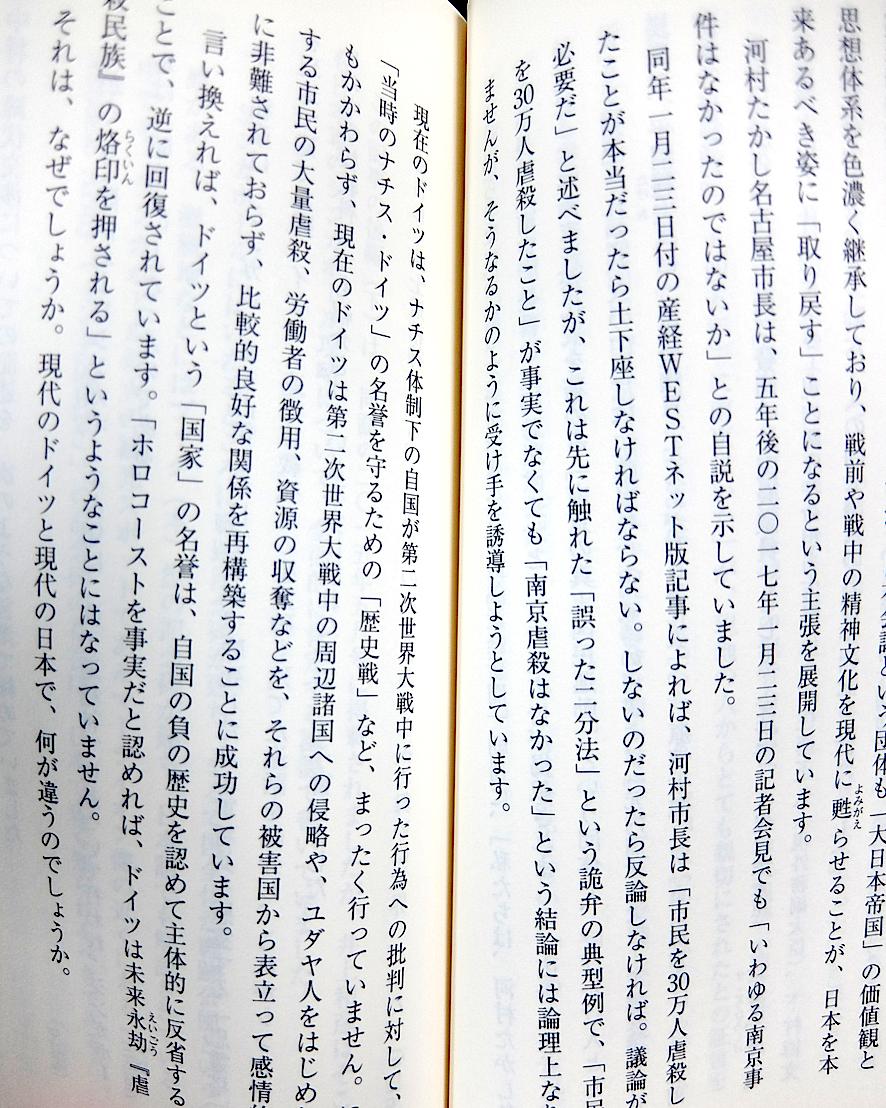 団体も「大日本帝国」の価値観と
思想体系を色濃く継承しており、戦前や戦中の精神文化を現代に甦らせることが、日本を本
来あるべき姿に「取り戻す」ことになるという主張を展開しています。
河村たかし名古屋市長は、五年後の二〇一七年一月二三日の記者会見でも「いわゆる南京事
件はなかったのではないか」との自説を示していました。
同年一月二三日付の産経WESTネット版記事によれば、河村市長は「市民を30万人虐殺し
たことが本当だったら土下座しなければならない。しないのだったら反論しなければ。議論が
必要だ」と述べましたが、これは先に触れた「誤った二分法」という詭弁の典型例で、「市民
を30万人虐殺したこと」が事実でなくても「南京虐殺はなかった」という結論には論理上な
ませんが、そうなるかのように受け手を誘導しようとしています。
現在のドイツは、ナチス体制下の自国が第二次世界大戦中に行った行為への批判に対して、
「当時のナチス・ドイツ」の名誉を守るための「歴史戦」など、まったく行っていません。
もかかわらず、現在のドイツは第二次世界大戦中の周辺諸国への侵略や、ユダヤ人をはじめ
する市民の大量虐殺、労働者の徴用、資源の収奪などを、それらの被害国から表立って感情
に非難されておらず、比較的良好な関係を再構築することに成功しています。
言い換えれば、ドイツという「国家」の名誉は、自国の負の歴史を認めて主体的に反省する
ことで、逆に回復されています。「ホロコーストを事実だと認めれば、ドイツは未来永劫『虐
殺民族』の烙印を押される」というようなことにはなっていません。
それは、なぜでしょうか。現代のドイツと現代の日本で、何が違うのでしょうか。